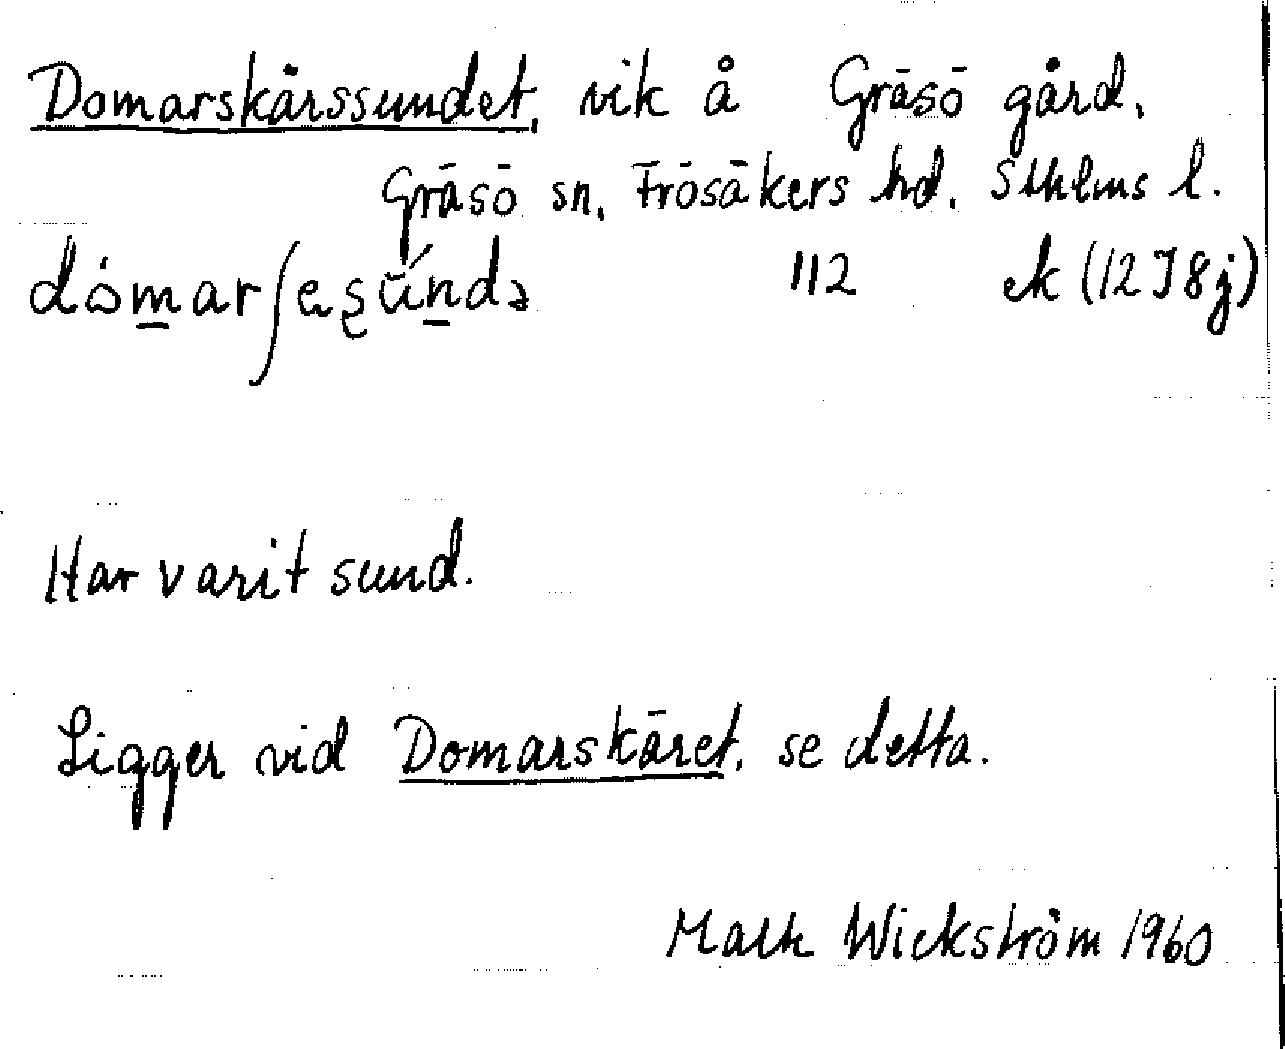 Domarskärssundet, vik å Gräsö gård,
Gräsö sn, Frösåkers hd. Sthlms l.
112 ek (12 I 8 j)
Har varit sund.
Ligger vid Domarskäret, se detta.
Wickström 1960